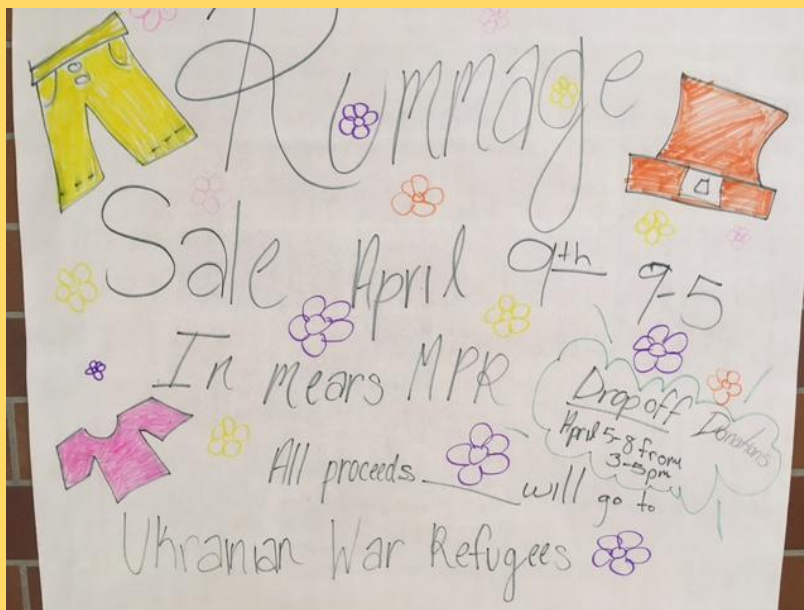 Rummage
Sale April 9th 9-5
In mears MPR
Drop off Donations
April 5-8 from
3-5pm
All proceeds will go to
Ukranian War Refugees